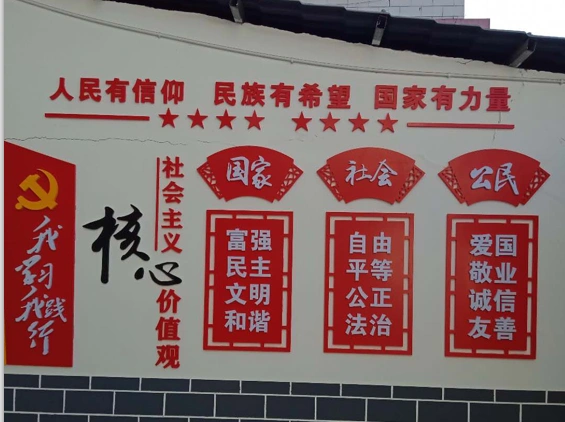 人民有信仰 民族有希望 国家有力量
我学习我践行
社会主义
核心
价值观
国家
富强
民主
文明
和谐
社会
自由
平等
公正
法治
公民
爱国
敬业
诚信
友善